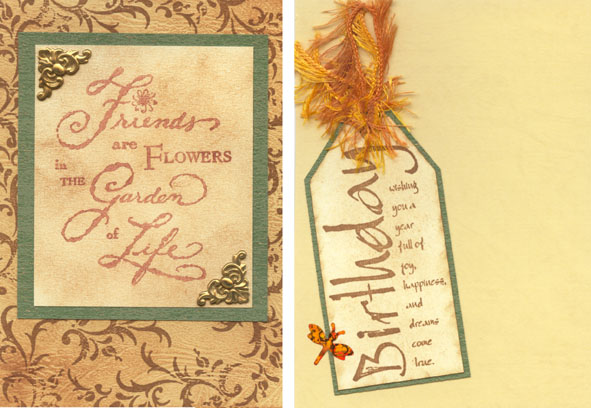 Friends
are FLOWERS
in THE Garden
of Life
Birthday
wishing
you a
year
full of
joy,
happiness,
and
dreams
come
true.